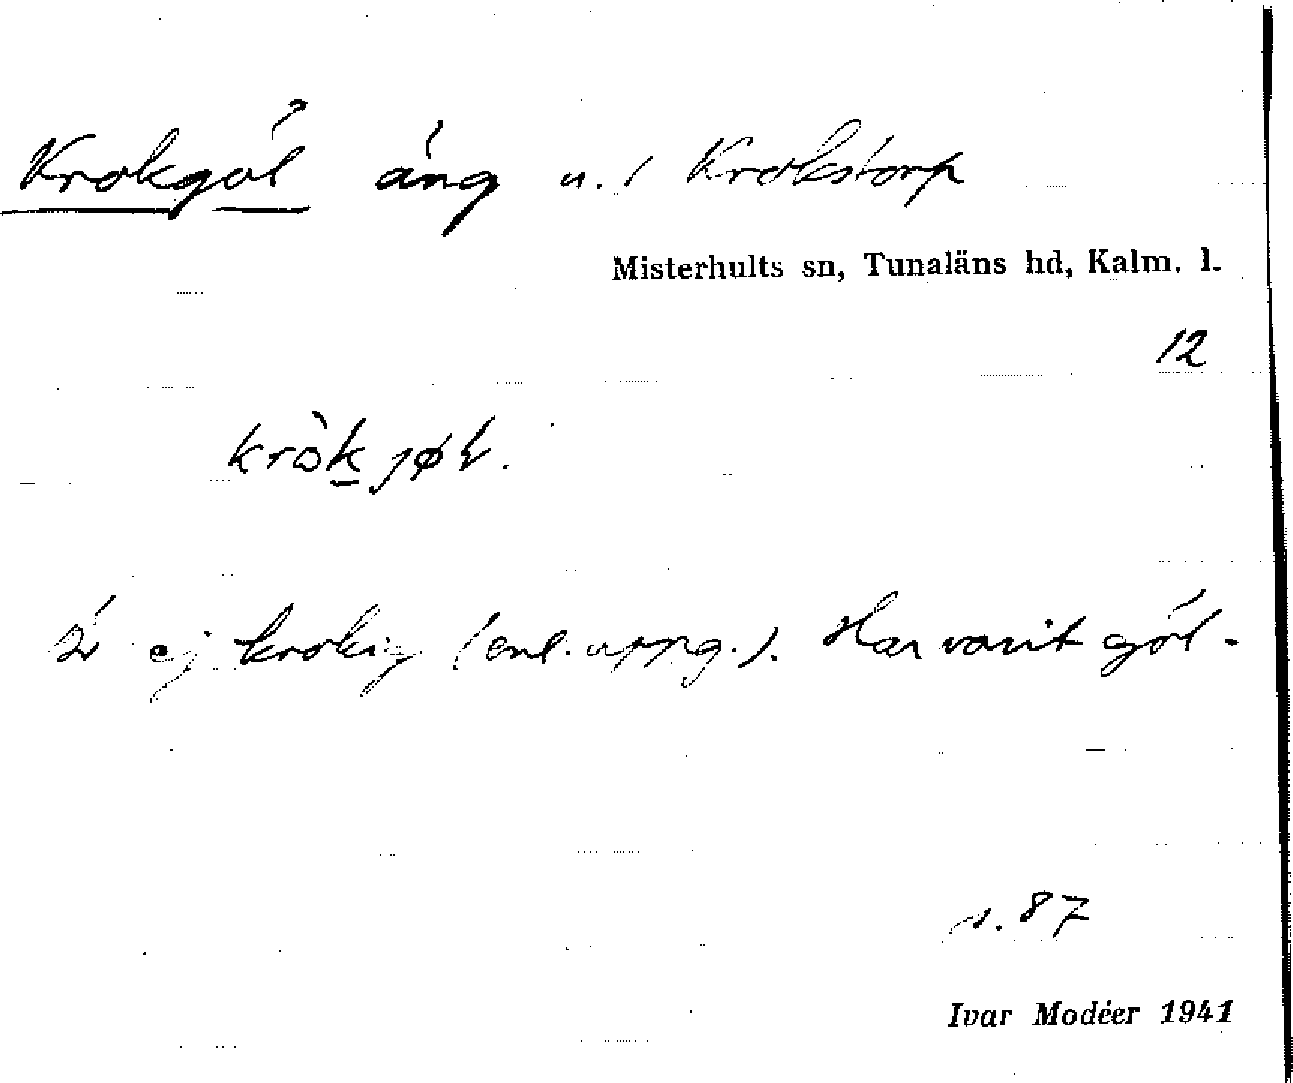 Krokgöl äng u. / Krokstorp
Misterhults sn, Tunaläns hd, Kalm. l.
12
kròk jøł.
Är ej krokig (enl. uppg.). Har varit göl.
s. 87
Ivar Modéer 1941